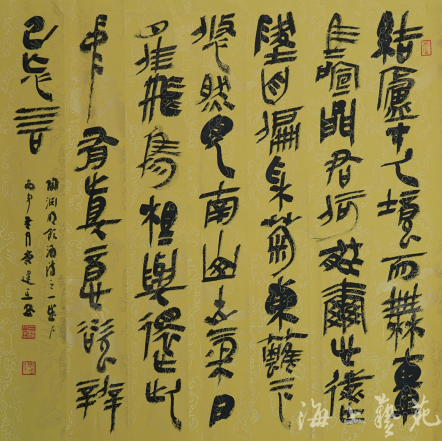 結廬在人境而無車
馬喧問君何能爾心遠
地自偏采菊東籬下
悠然見南山山氣日
夕佳飛鳥相與還此
中有真意欲辨
已忘言
陶淵明飲酒詩之一
丙申
海上藝苑